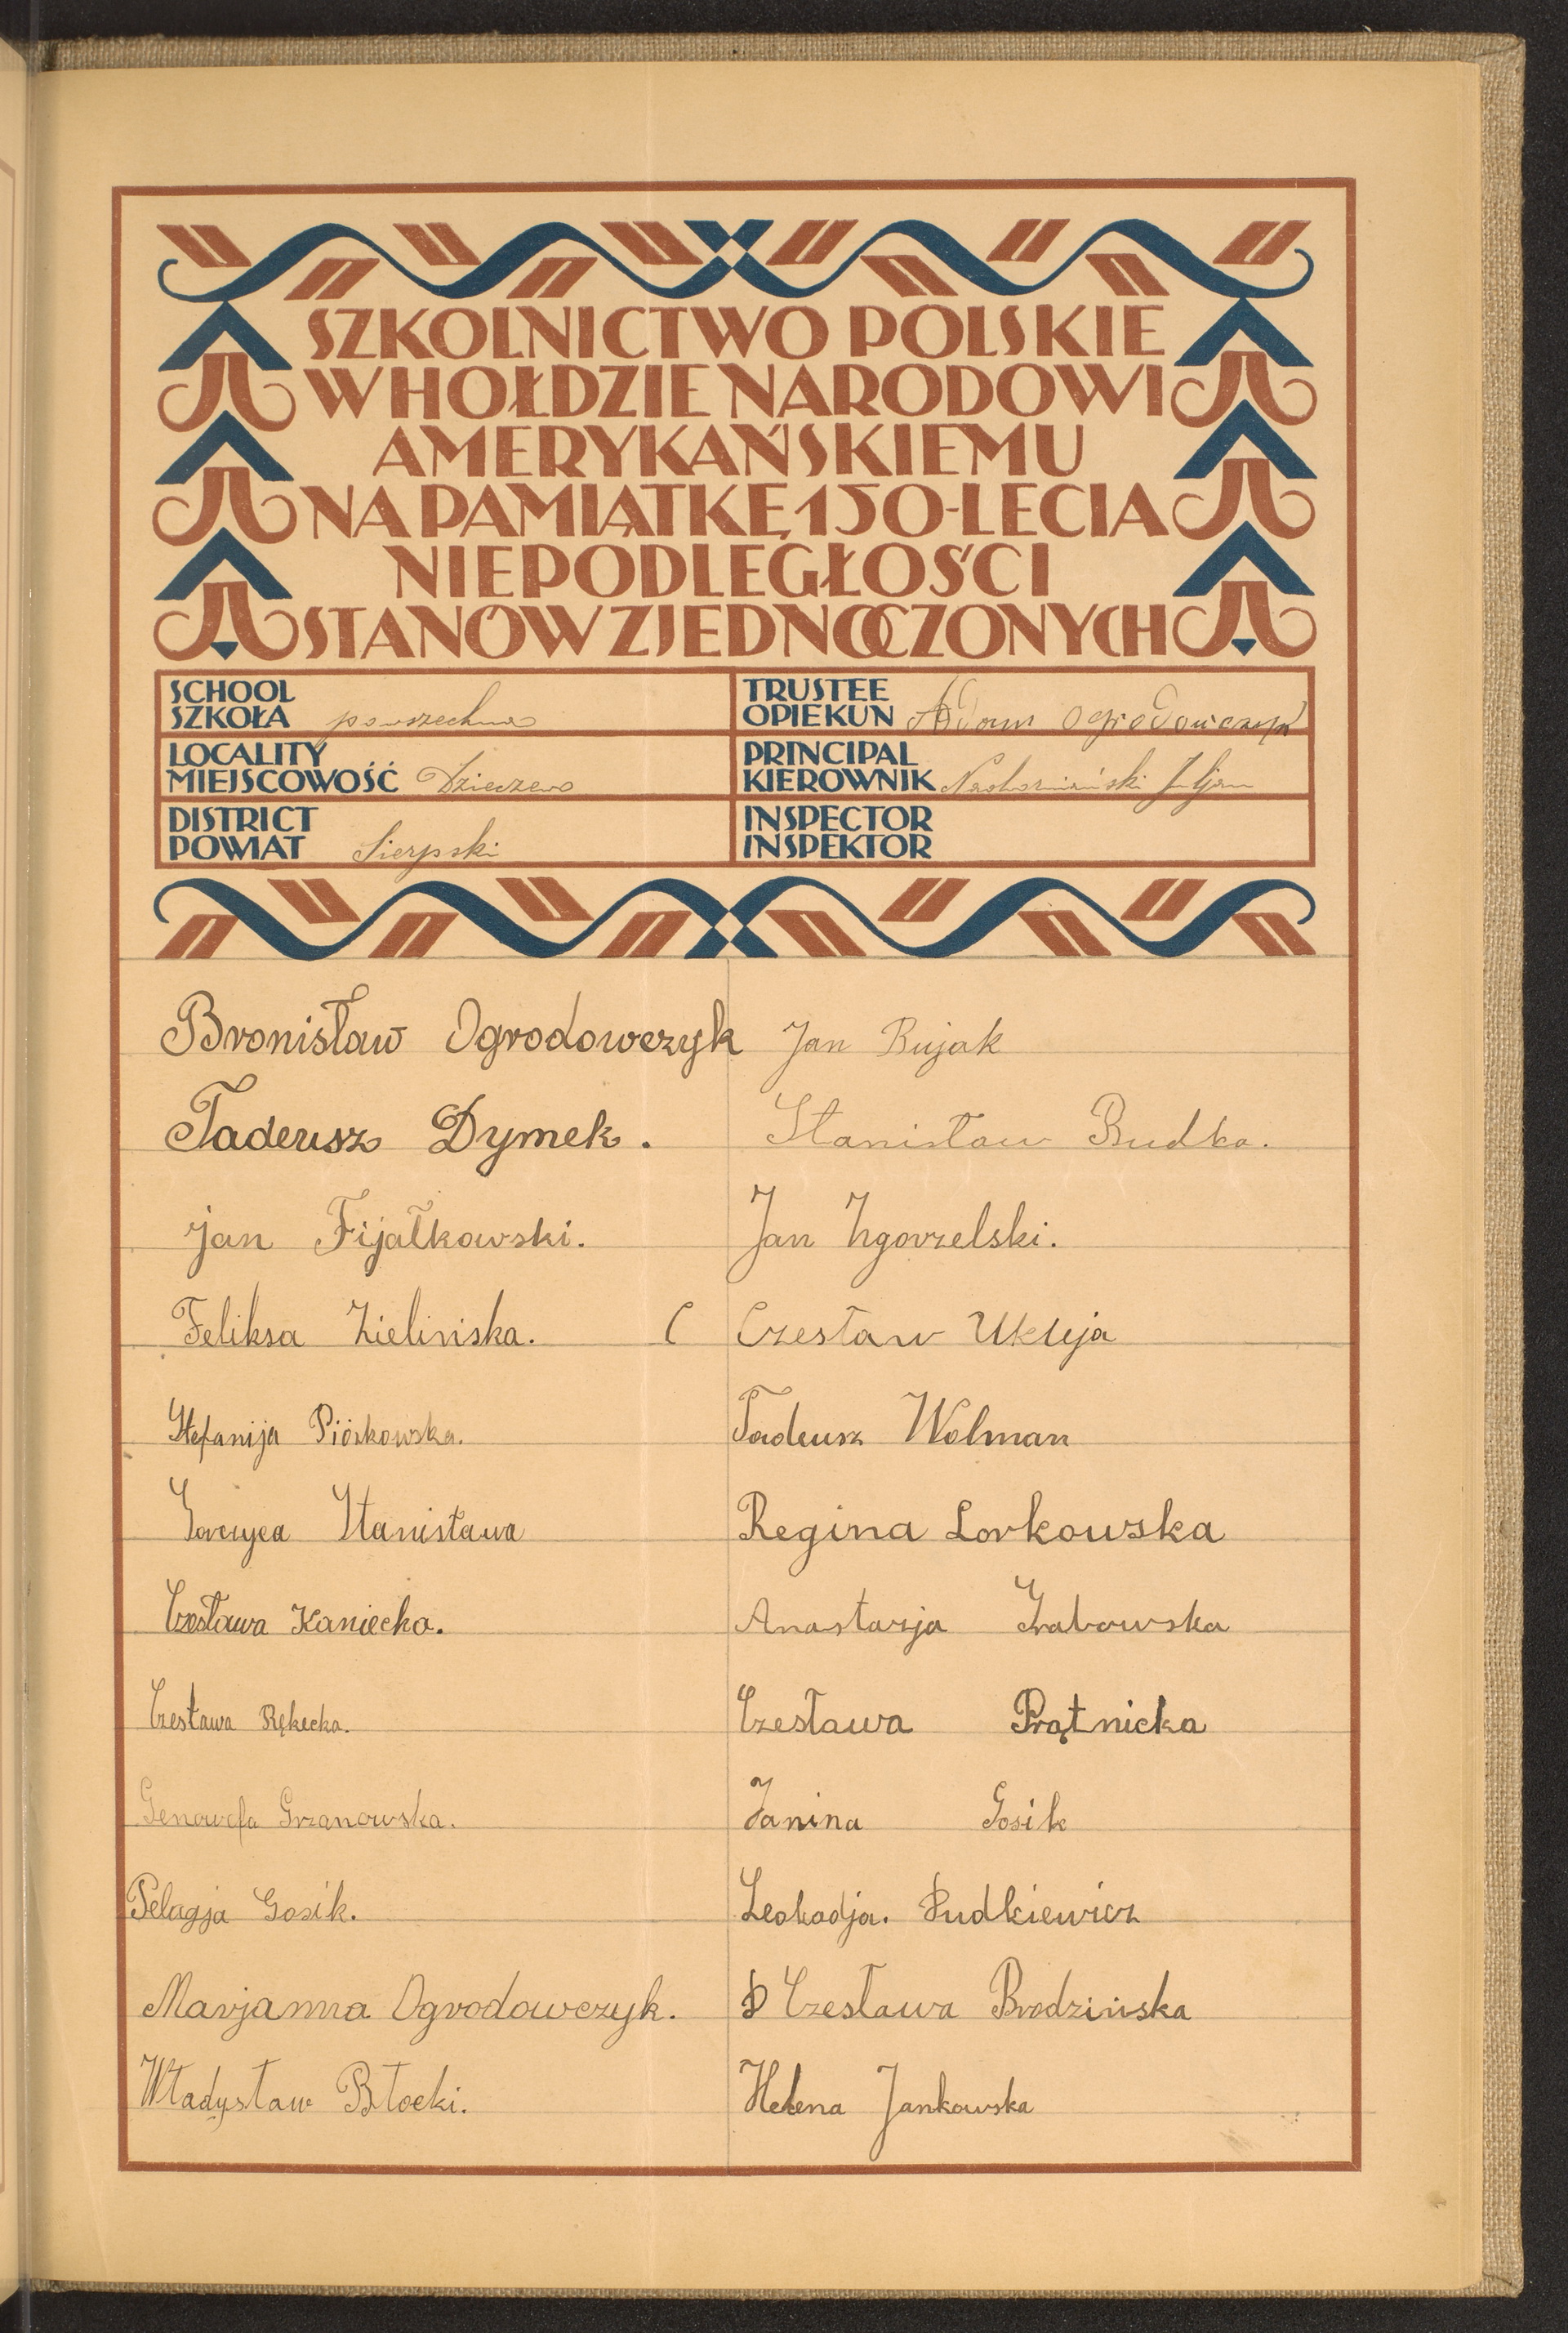 SZKOLNICTWO POLSKIE
W HOŁDZIE NARODOWI
AMERYKAŃSKIEMU
NA PAMIĄTKĘ 150-LECIA
NIEPODLEGŁOŚCI
STANÓW ZJEDNOCZONYCH
SCHOOL
SZKOŁA powszechna
TRUSTEE
OPIEKUN Adam Ogrodowczyk
LOCALITY
MIEJSCOWOŚĆ Dzieczewo
PRINCIPAL
KIEROWNIK Juljan
DISTRICT
POWIAT Sierpski
INSPECTOR
INSPEKTOR
Bronisław Ogrodowczyk
Tadeusz Dymek.
Jan Fijałkowski.
Feliksa Zielińska.
Stefanija Piórkowska.
Stanisława
Czesława Kaniecka.
Czesława Rękecka.
Genowefa Grzanowska.
Pelagja Gosik.
Marjanna Ogrodowczyk.
Władysław Błocki.
Jan Bujak
Stanisław Budka.
Jan Zgorzelski.
C Czesław Ukleja
Tadeusz Wolman
Regina Lorkowska
Anastazja Grabowska
Czesława Prątnicka
Janina Gosik
Leokadja. Rudkiewicz
Czesława Brodzińska
Helena Jankowska